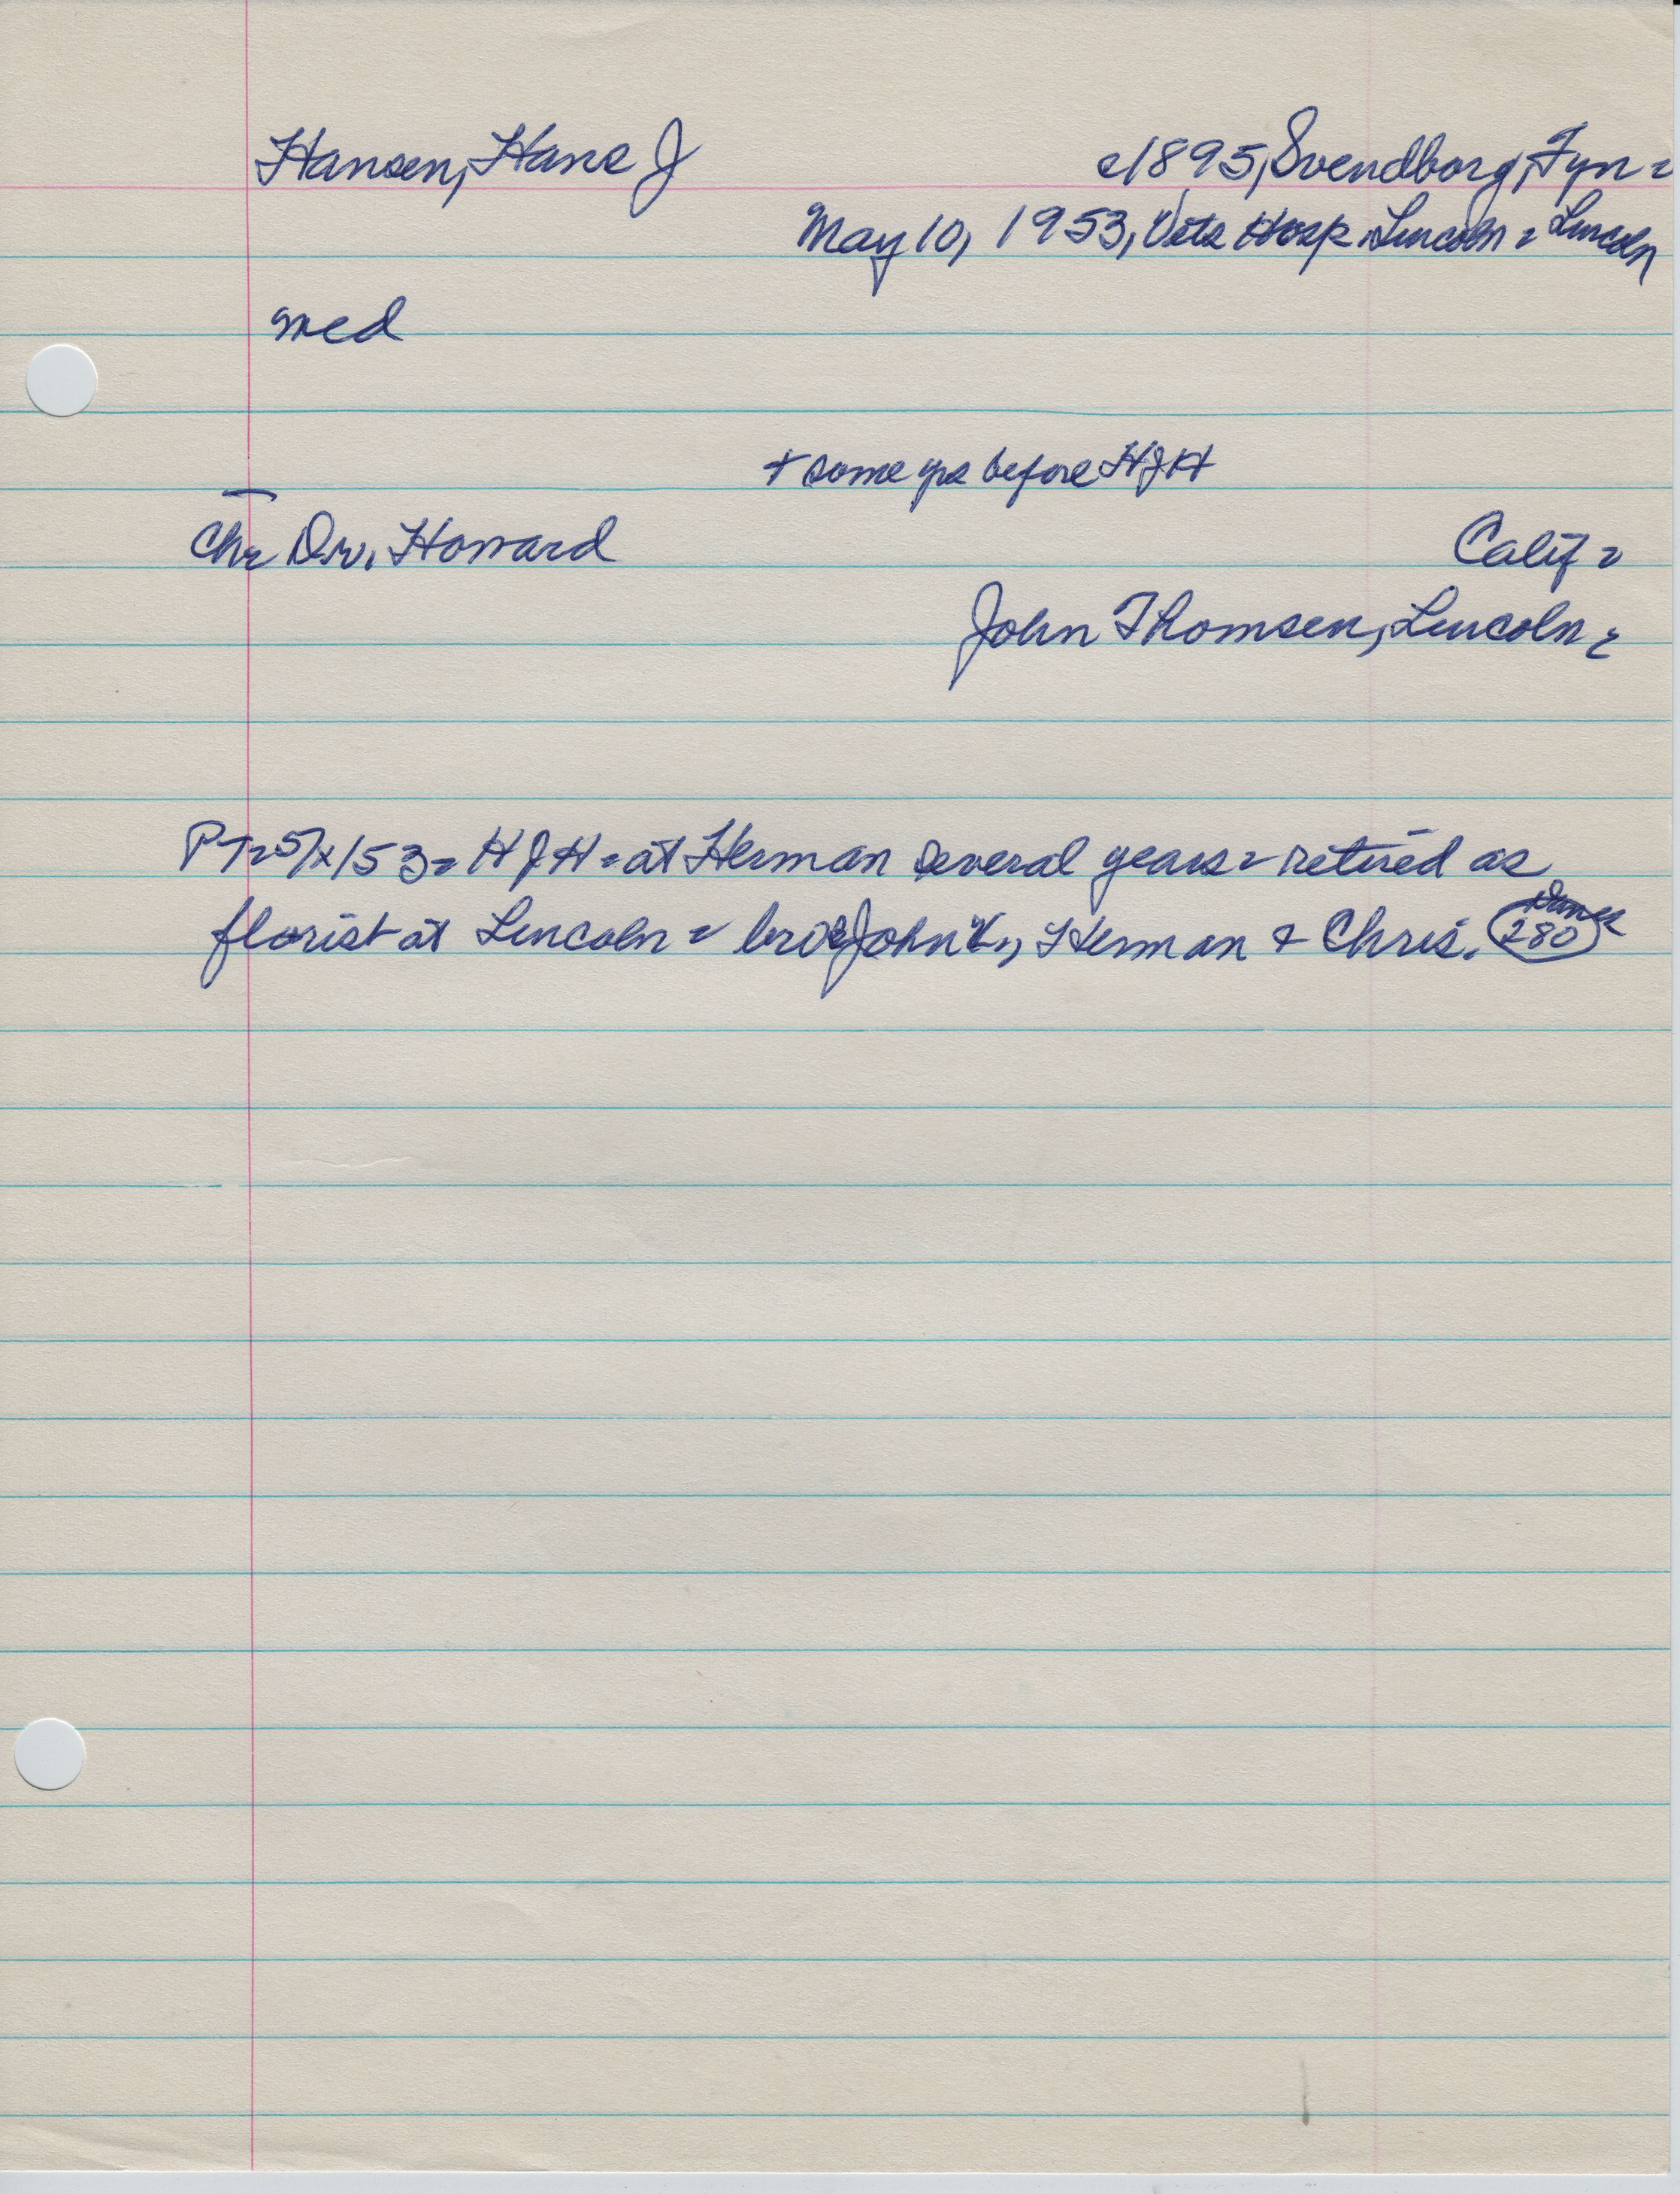 Hansen, Hans J c1895, Svendborg, Fyn =
May 10, 1953, Vets Hosp Lincoln = Lincoln
med
+ some yrs before HJH
Chr Dr. Howard Calif =
John Thomsen, Lincoln =
PTr 5/x/53 = HJH = at Herman several years = retired as
florist at Lincoln = bro John, Herman & Chris. 280